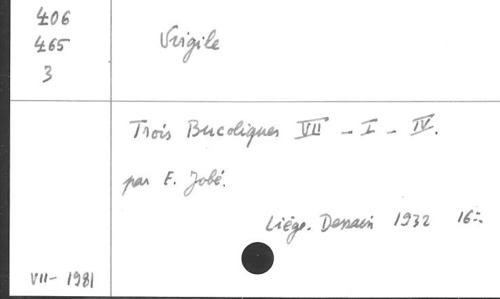 406
465
3
Virgile
Trois Bucoliques VII - I - IV.
par E. Jobé.
Liége. Dessain 1932 16º
VII - 1981